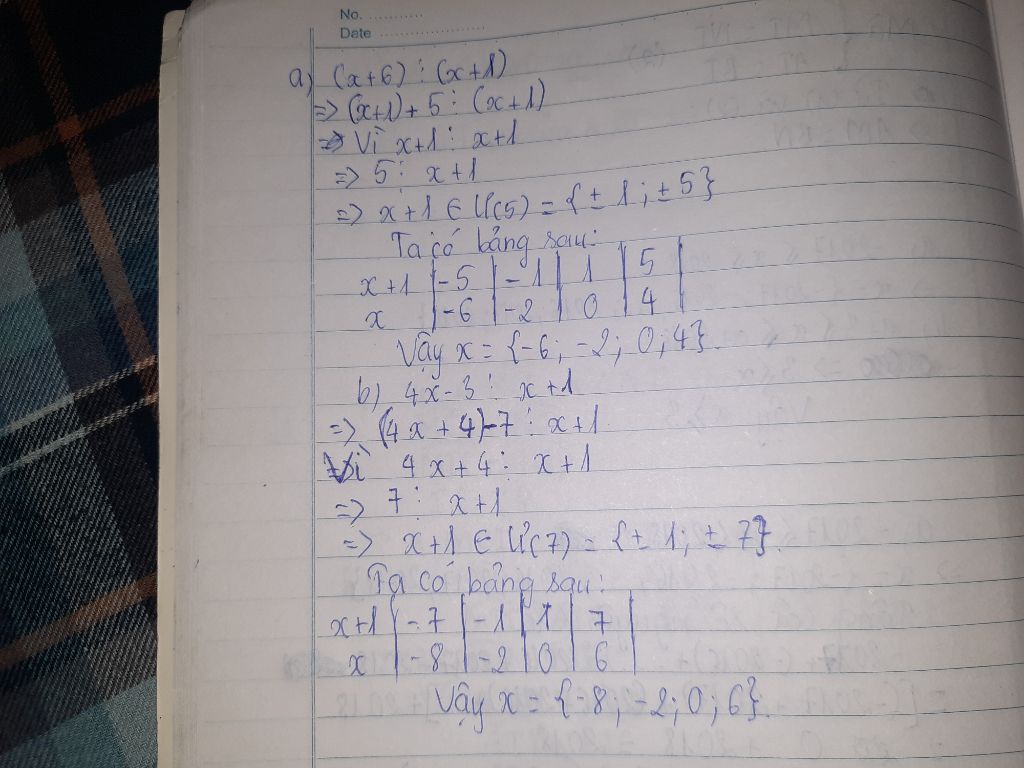 No. ............
Date ......................
a) (x+6) ⋮ (x+1)
=> (x+1) + 5 ⋮ (x+1)
=> Vì x+1 ⋮ x+1
=> 5 ⋮ x+1
=> x+1 ∈ Ư(5) = {± 1 ; ± 5}
Ta có bảng sau:
x+1 | -5 | -1 | 1 | 5 |
x | -6 | -2 | 0 | 4 |
Vậy x = {-6 ; -2 ; 0 ; 4}.
b) 4x - 3 ⋮ x+1
=> (4x + 4) - 7 ⋮ x+1
Vì 4x + 4 ⋮ x+1
=> 7 ⋮ x+1
=> x+1 ∈ Ư(7) = {± 1 ; ± 7}.
Ta có bảng sau:
x+1 | -7 | -1 | 1 | 7 |
x | -8 | -2 | 0 | 6 |
Vậy x = {-8 ; -2 ; 0 ; 6}.